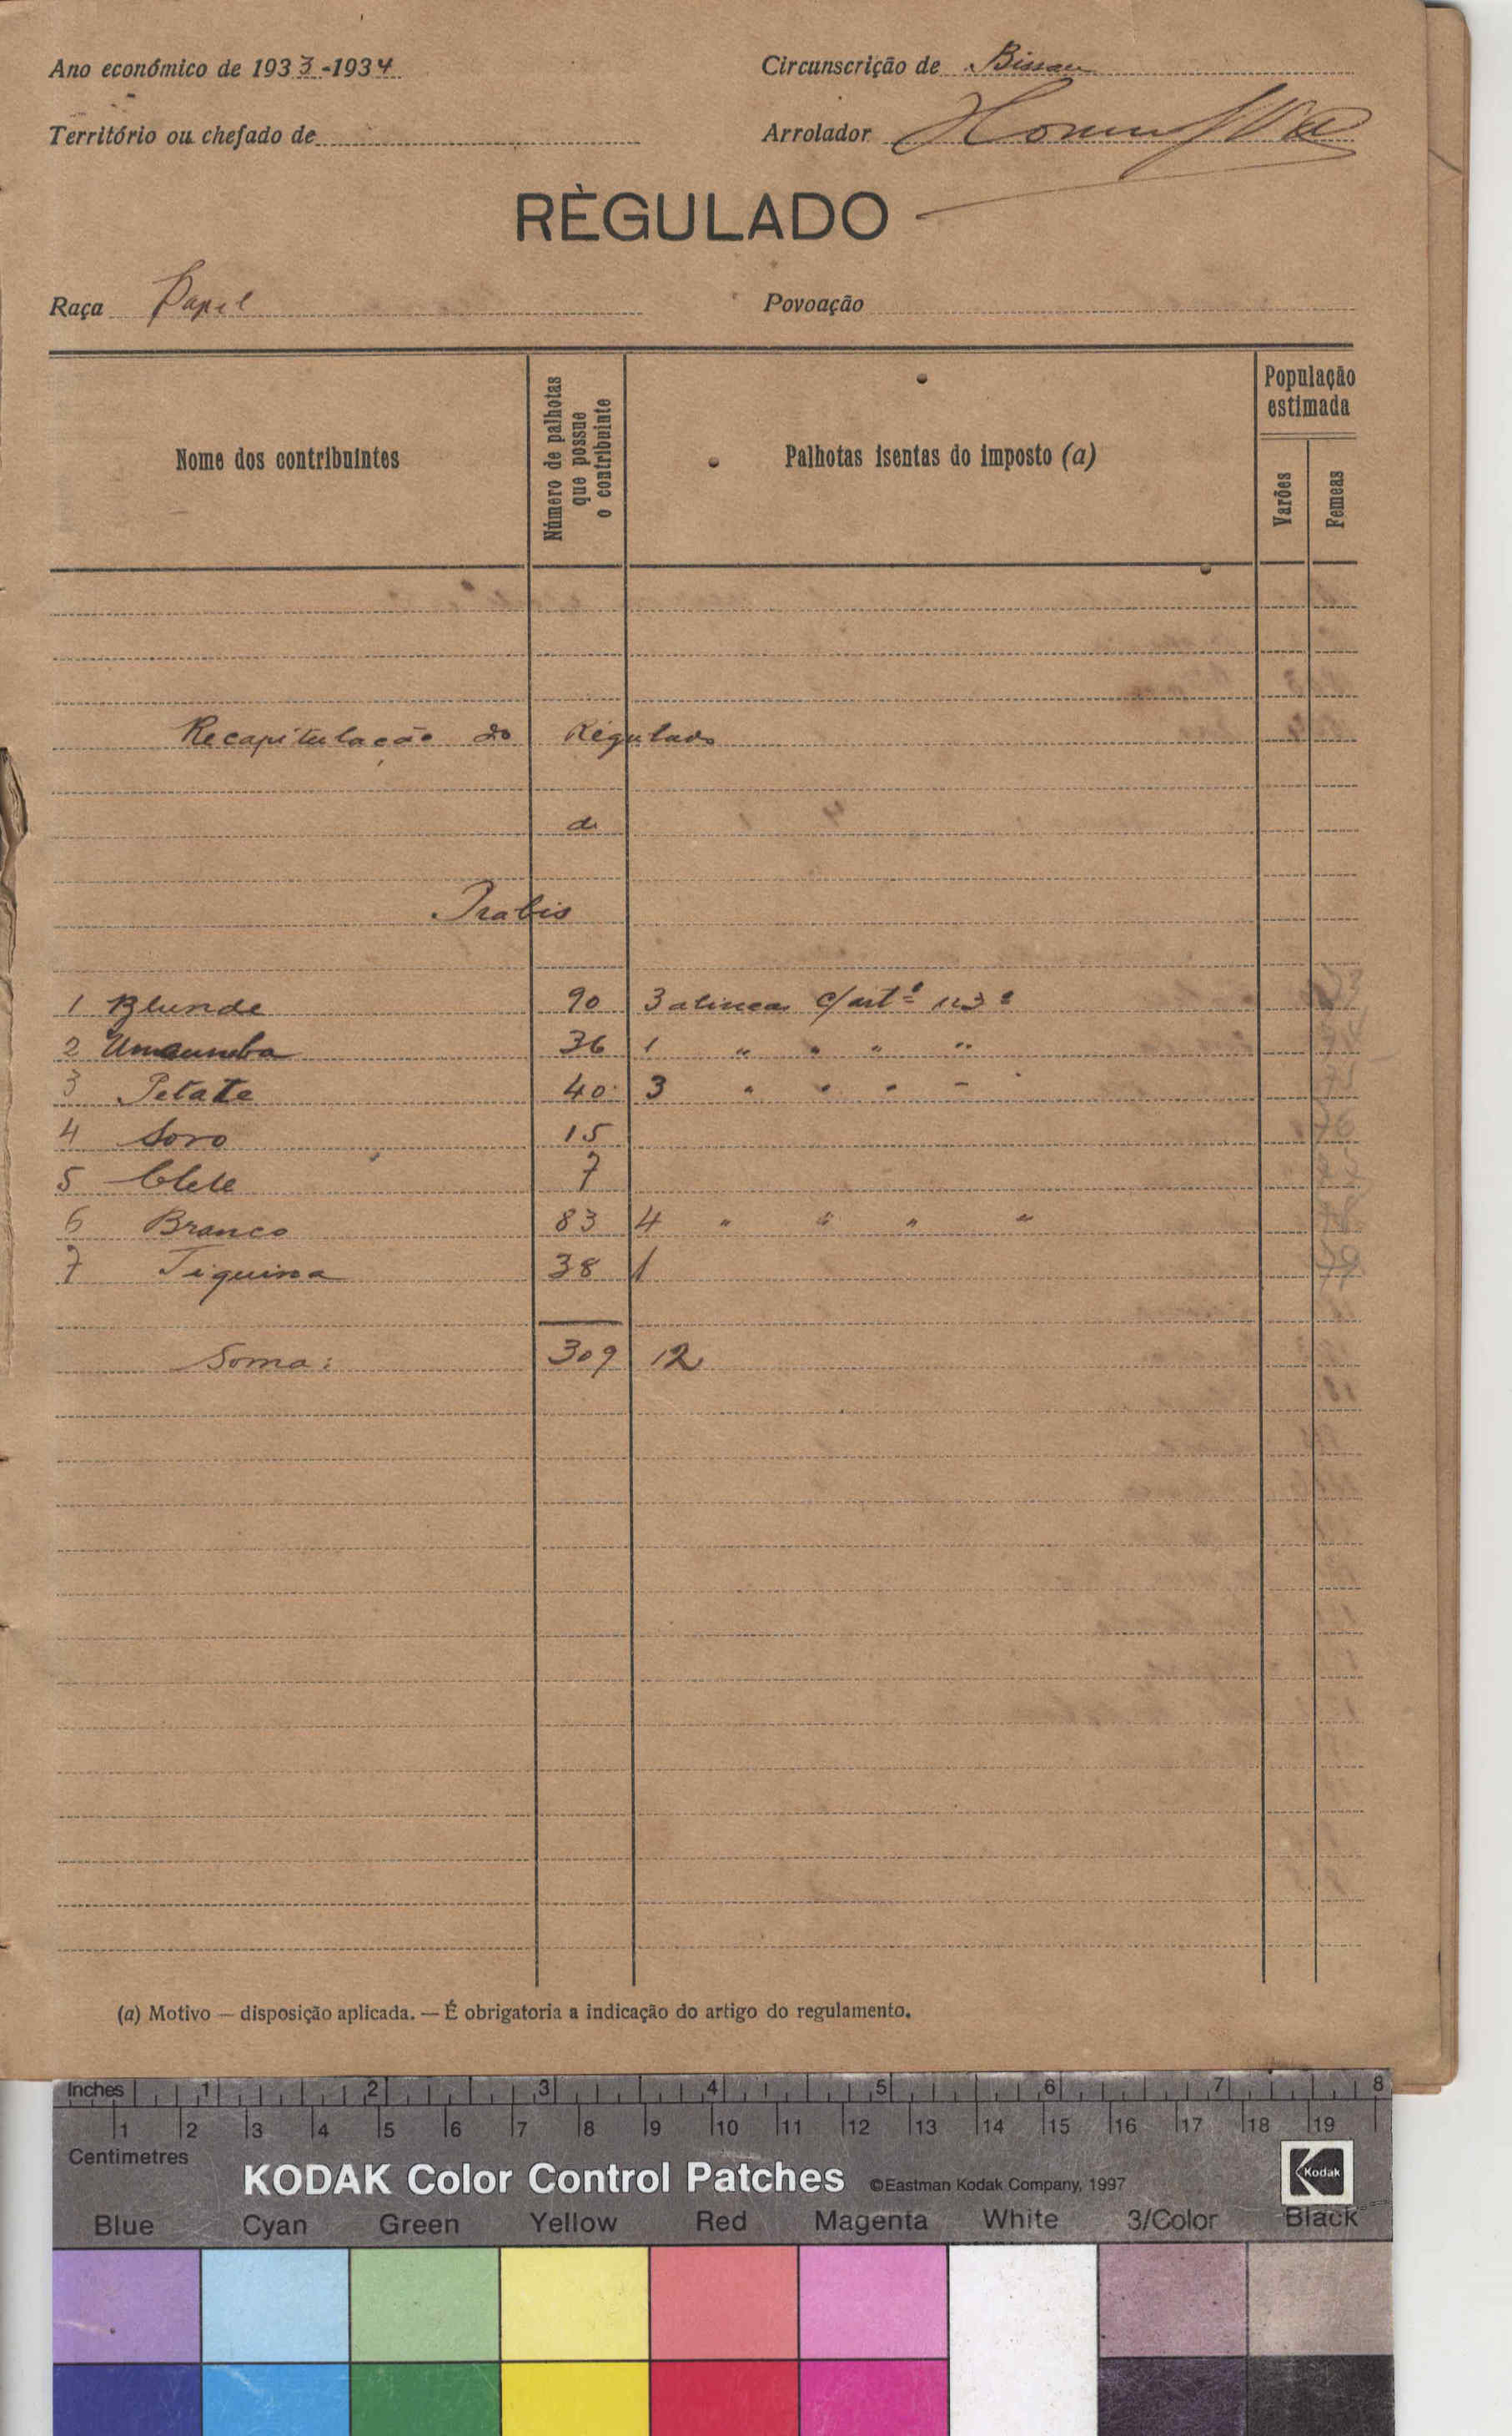 Ano económico de 1933-1934
Circunscrição de Bissau
Território ou chefado de
Arrolador
RÈGULADO
Raça Papel
Povoação
Nome dos contribuintes
Número de palhotas que possue o contribuinte
Palhotas isentas do imposto (a)
População estimada
Varões
Femeas
Recapitulação do Régulado
de
Prabis
1 Blunde 90 3 alineas c/ artº 123º
2 36 1 " " " "
3 Petate 40 3 " " " "
4 Soro 15
5 7
6 Branco 83 4 " " " "
7 Tiquina 38 1
Soma: 309 12
(a) Motivo — disposição aplicada. — É obrigatoria a indicação do artigo do regulamento.
Inches 1 2 3 4 5 6 7 8
1 2 3 4 5 6 7 8 9 10 11 12 13 14 15 16 17 18 19
Centimetres
KODAK Color Control Patches ©Eastman Kodak Company, 1997 Kodak
Blue Cyan Green Yellow Red Magenta White 3/Color Black